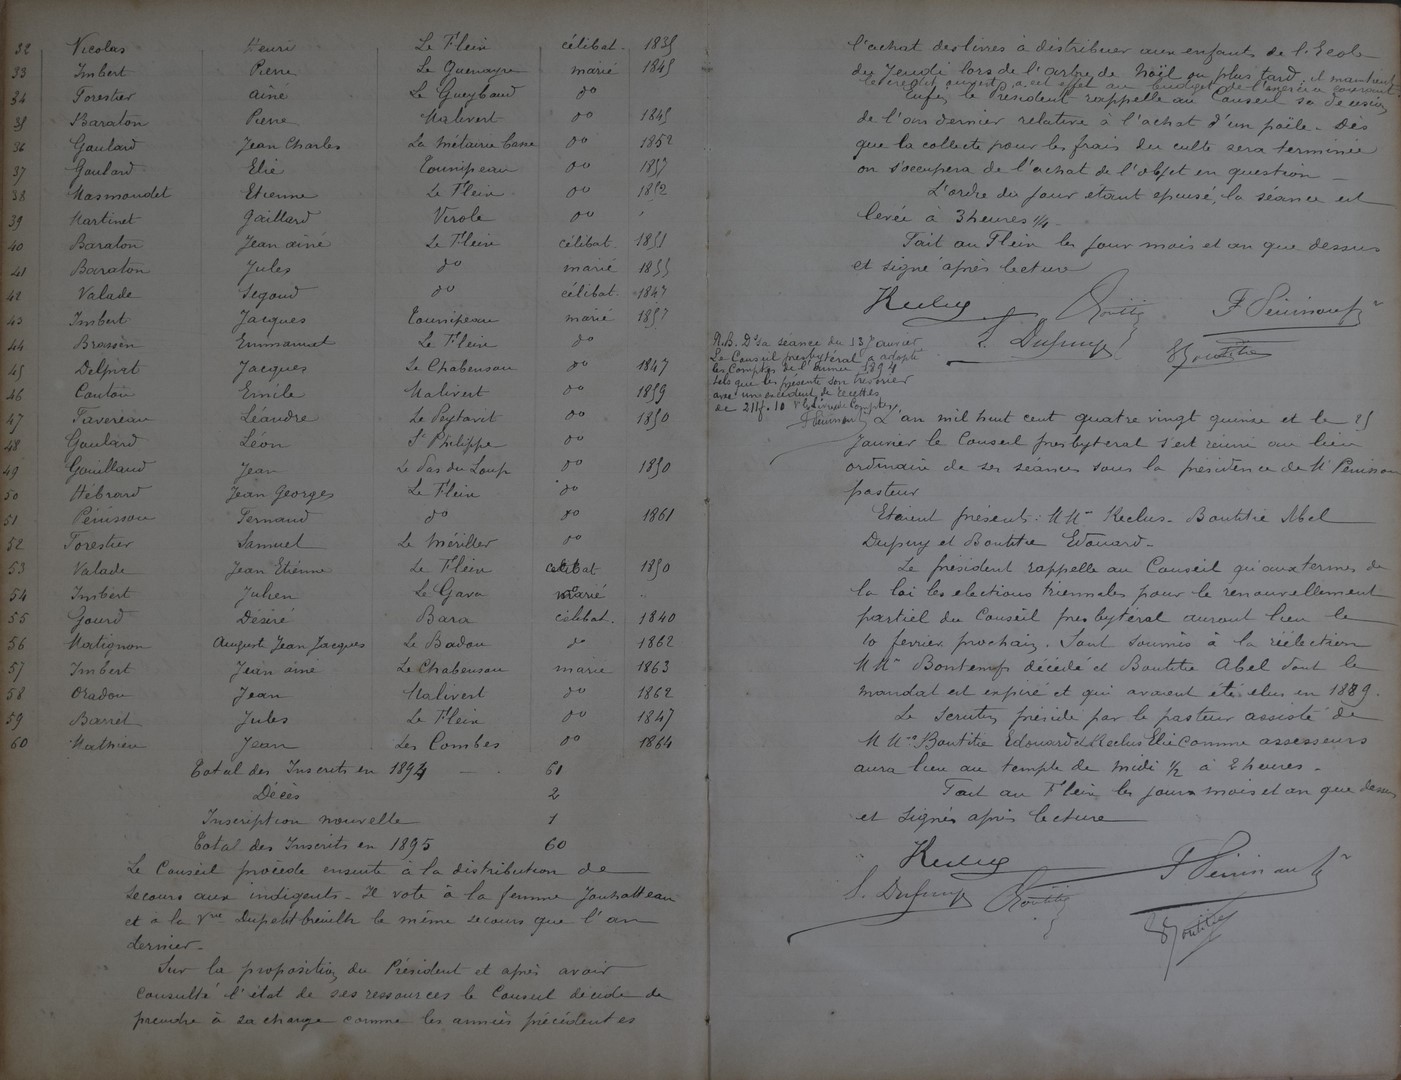 32 Nicolas Henri Le Flein célibat. 1835
33 Imbert Pierre Le Quenayre marié 1845
34 Forestier ainé Le Gueybaud do
35 Baraton Pierre Malivert do 1845
36 Goulard Jean Charles La Métairie basse do 1852
37 Goulard Elie Tounipeau do 1857
38 Masmondet Etienne Le Flein do 1852
39 Martinet Gaillard Virole do
40 Baraton Jean ainé Le Flein célibat. 1851
41 Baraton Jules do marié 1855
42 Valade Segond do célibat. 1847
43 Imbert Jacques Tounipeau marié 1857
44 Brossin Emmanuel Le Flein do
45 Delpirt Jacques Le Chabensou do 1847
46 Couton Emile Malivert do 1859
47 Tavereau Léandre Le Peytavit do 1850
48 Goulard Léon St Philippe do
49 Gouilland Jean Le Pas du Loup do 1850
50 Hébrard Jean Georges Le Flein do
51 Pénissou Fernand do do 1861
52 Forestier Samuel Le Mériller do
53 Valade Jean Etienne Le Flein célibat 1850
54 Imbert Julien Le Gava marié "
55 Gourd Désiré Bara célibat. 1840
56 Matignon August Jean Jacques Le Badou do 1862
57 Imbert Jean ainé Le Chabensou marié 1863
58 Oradou Jean Malivert do 1862
59 Barret Jules Le Flein do 1847
60 Mathieu Jean Les Combes do 1864
Total des Inscrits en 1894 61
Décès 2
Inscription nouvelle 1
Total des Inscrits en 1895 60
Le Conseil procède ensuite à la distribution de
secours aux indigents. Il vote à la femme
et à la Vve Dupetitbreuilh le même secours que l'an
dernier.
Sur la proposition du Président et après avoir
consulté l'état de ses ressources le Conseil décide de
prendre à sa charge comme les années précédentes
l'achat des livres à distribuer aux enfants de l'Ecole
du Jeudi lors de l'arbre de Noël ou plus tard, il maintient
le crédit à cet effet au budget de l'exercice courant
Enfin le Président rappelle au Conseil sa décision
de l'an dernier relative à l'achat d'un poële. Dès
que la collecte pour les frais du culte sera terminée
on s'occupera de l'achat de l'objet en question
L'ordre du jour étant épuisé, la séance est
levée à 3 heures 1/4.
Fait au Flein les jour mois et an que dessus
et signé après lecture
Reclus Boutitie F Pénissou pr
L. Dupuy
Ed Boutitie
N.B. Ds sa séance du 13 Janvier
Le Conseil presbytéral a adopté
les Comptes de l'année 1894
tels que les présente son trésorier
avec un excédent de recettes
de 211f.10 V. le livre de Comptes
F Pénissou
L'an mil huit cent quatre vingt quinze et le 25
Janvier le Conseil presbytéral s'est réuni au lieu
ordinaire de ses séances sous la présidence de Mr Pénissou
pasteur
Etaient présents: MMrs Reclus. Boutitie Abel
Dupuy et Boutitie Edouard.
Le président rappelle au Conseil qu'aux termes de
la loi les élections triennales pour le renouvellement
partiel du Conseil presbytéral auront lieu le
10 février prochain. Sont soumis à la réélection
MMrs Bontemps décédé et Boutitie Abel dont le
mandat est expiré et qui avaient été élus en 1889.
Le Scrutin présidé par le pasteur assisté de
MMrs Boutitie Edouard et Reclus Elie comme assesseurs
aura lieu au temple de midi 1/2 à 2 heures.
Fait au Flein les jour mois et an que dessus
et signés après lecture
Reclus F Pénissou pr
L. Dupuy Boutitie
Ed Boutitie